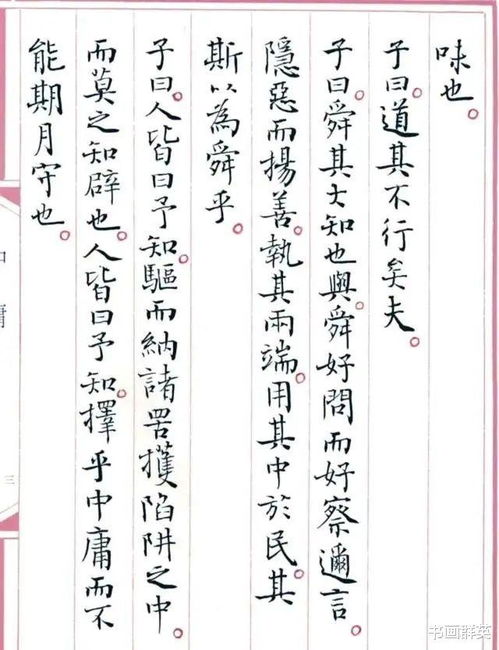 味也。
子曰。道其不行矣夫。
子曰。舜其大知也與。舜好問而好察邇言。
隱惡而揚善。執其兩端。用其中於民。其
斯以為舜乎。
子曰。人皆曰予知。驅而納諸罟擭陷阱之中。
而莫之知辟也。人皆曰予知。擇乎中庸而不
能期月守也。
中庸
三
书画群英